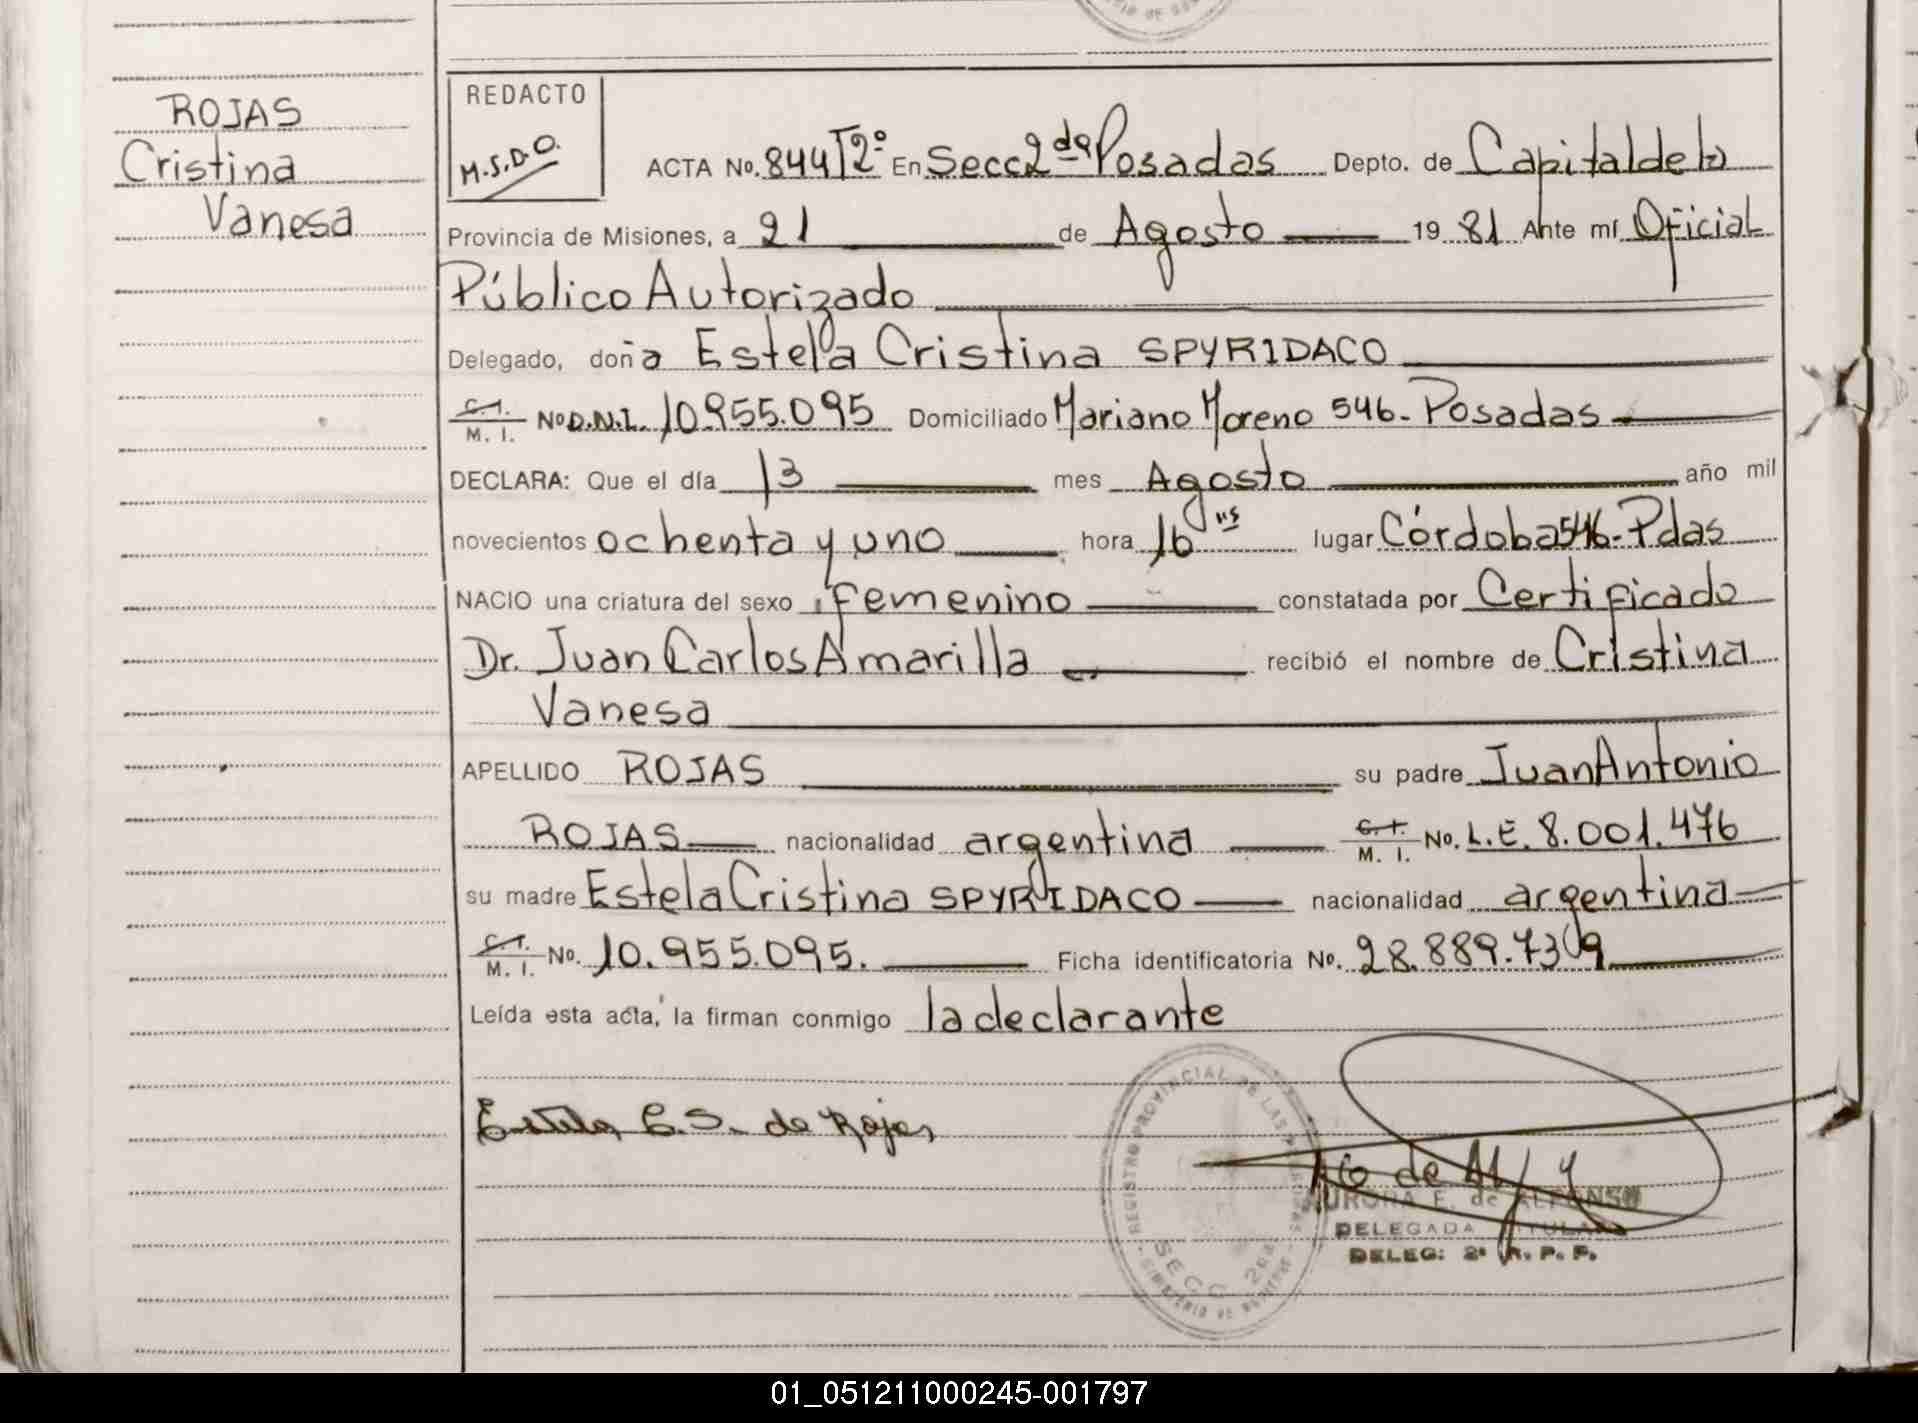 ROJAS
Cristina
Vanesa
REDACTO
M.S.D.O.
ACTA No. 844 T2º En Secc 2da Posadas Depto. de Capital de la
Provincia de Misiones, a 21 de Agosto 19 81 Ante mí Oficial
Público Autorizado
Delegado, doña Estela Cristina SPYRIDACO
C.I. M. I. No D.N.I. 10.955.095 Domiciliado Mariano Moreno 546.- Posadas
DECLARA: Que el día 13 mes Agosto año mil
novecientos ochenta y uno hora 16 hs lugar Córdoba 546.- Pdas
NACIO una criatura del sexo femenino constatada por Certificado
Dr. Juan Carlos Amarilla recibió el nombre de Cristina
Vanesa
APELLIDO ROJAS su padre Juan Antonio
ROJAS nacionalidad argentina C.I. M. I. No. L.E. 8.001.476
su madre Estela Cristina SPYRIDACO nacionalidad argentina
C.I. M. I. No. 10.955.095. Ficha identificatoria No. 28.889.739
Leída esta acta, la firman conmigo la declarante
Estela C.S. de Rojas
REGISTRO PROVINCIAL DE LAS PERSONAS
SECC. 2da
AURORA E. de ALFONSO
DELEGADA TITULAR
DELEG: 2ª R. P. P.
01_051211000245-001797